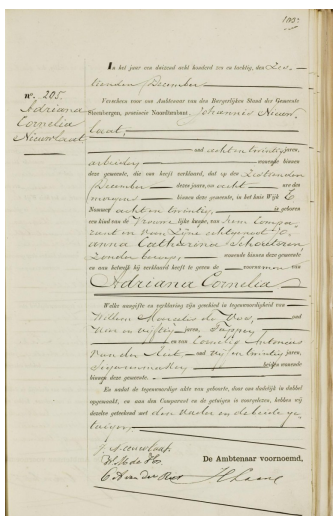 In het jaar een duizend acht honderd zes en tachtig, den Zes-
tienden December
verscheen voor ons Ambtenaar van den Burgerlijken Stand der Gemeente
Steenbergen, provincie Noordbrabant, Johannis Nieuw-
laat,
N°. 205.
Adriana
Cornelia
Nieuwlaat
oud acht en twintig jaren,
arbeider wonende binnen
deze gemeente, die ons heeft verklaard, dat op den Zestienden
December dezes jaars, om acht ure des
morgens binnen deze gemeente, in het huis Wijk E
Nummer acht en twintig, is geboren
een kind van de vrouwelijke kunne, van hem Compa-
rant en van zijne echtgenoot Jo-
anna Catharina
zonder beroep, wonende binnen deze gemeente
en aan hetwelk hij verklaard heeft te geven de voornamen van
Adriana Cornelia
Welke aangifte en verklaring zijn geschied in tegenwoordigheid van
Willem Marcelis de Vos, oud
vier en vijftig jaren, Tapper
en van Cornelis Antonius
van der Riet, oud vijf en twintig jaren,
Sigarenmaker, beiden wonende
binnen deze gemeente.
En is nadat de tegenwoordige akte van geboorte, daar van dadelijk in dubbel
opgemaakt, en aan den Comparant en de getuigen is voorgelezen, hebben wij
dezelve geteekend met den Vader en de beide ge-
tuigen.
J. Nieuwlaat
W. M. de Vos
C A van der Riet
De Ambtenaar voornoemd,